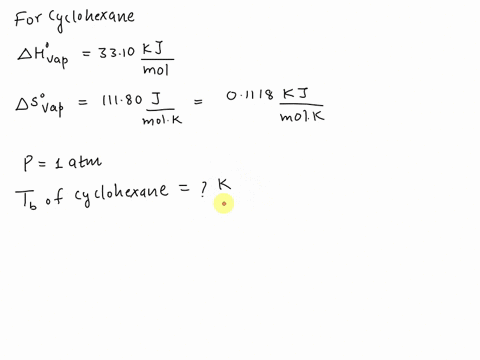 For cyclohexane
ΔH°vap = 33.10 KJ/mol
ΔS°vap = 111.80 J/mol.K = 0.1118 KJ/mol.K
P = 1 atm
Tb of cyclohexane = ? K